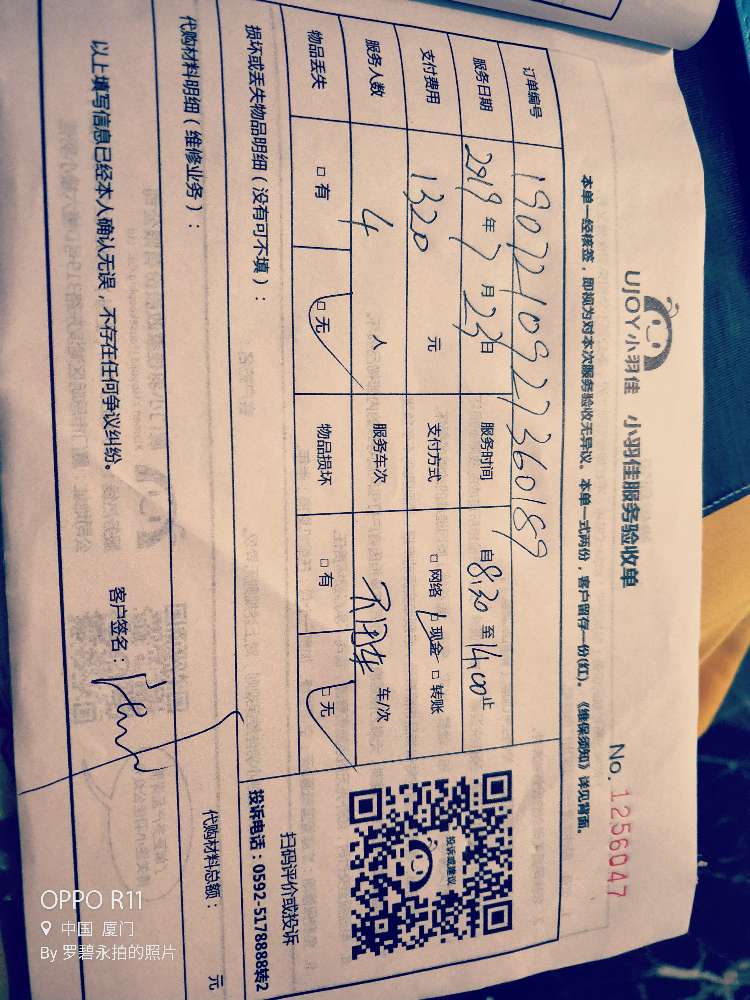 UJOY小羽佳 小羽佳服务验收单
No. 1256047
本单一经核签，即视为对本次服务验收无异议。本单一式两份，客户留存一份(红)。《维保须知》详见背面。
订单编号 1907210927360189
服务日期 2019年7月23日 服务时间 自8:30至14:00止
支付费用 1320 元 支付方式 □网络 □现金 □转账
服务人数 4 人 服务车次 不用车 车/次
物品丢失 □有 □无 物品损坏 □有 □无
投诉或建议
扫码评价或投诉
投诉电话：0592-5178888转2
损坏或丢失物品明细（没有可不填）：
代购材料明细（维修业务）：
代购材料总额： 元
以上填写信息已经本人确认无误，不存在任何争议纠纷。 客户签名：
OPPO R11
中国 厦门
By 罗碧永拍的照片